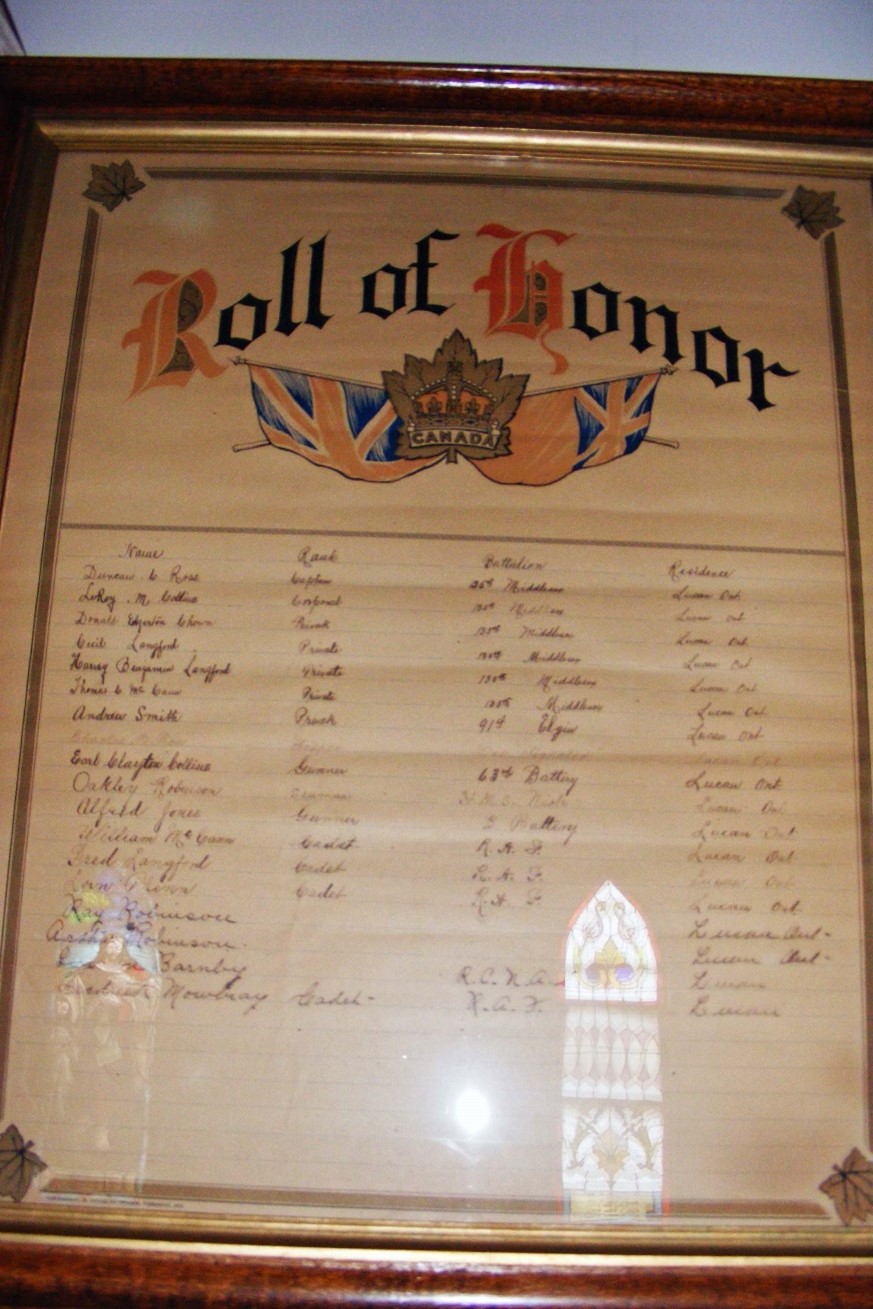 Roll of Honor
CANADA
Name Rank Battalion Residence
Duncan C Ross Captain Middlesex Lucan Ont
LeRoy . M. Collins Corporal 135th Middlesex Lucan Ont
Donald Egerton Private 135th Middlesex Lucan Ont
Cecil Langford Private 135th Middlesex Lucan Ont
Harvey Benjamin Langford Private 135th Middlesex Lucan Ont
Thomas C McCann Private 135th Middlesex Lucan Ont
Andrew Smith Private 91st Elgin Lucan Ont
Lucan Ont
Earl Clayton Collins Gunner 63rd Battery Lucan Ont
Oakley Robinson Seaman H.M.S. Lucan Ont
Alfred Jones Gunner Battery Lucan Ont
William McCann Cadet R.A.F. Lucan Ont
Fred Langford Cadet R.A.F. Lucan Ont
Cadet R.A.F. Lucan Ont
Ray Robinson Lucan Ont-
Robinson. Lucan Ont-
Barnby Lucan
Mowbray Cadet- R.A.F. Lucan